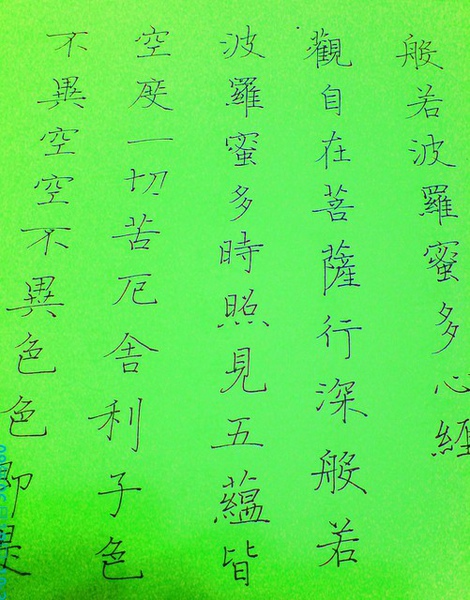 般若波羅蜜多心經
觀自在菩薩行深般若
波羅蜜多時照見五蘊皆
空度一切苦厄舍利子色
不異空空不異色色即是